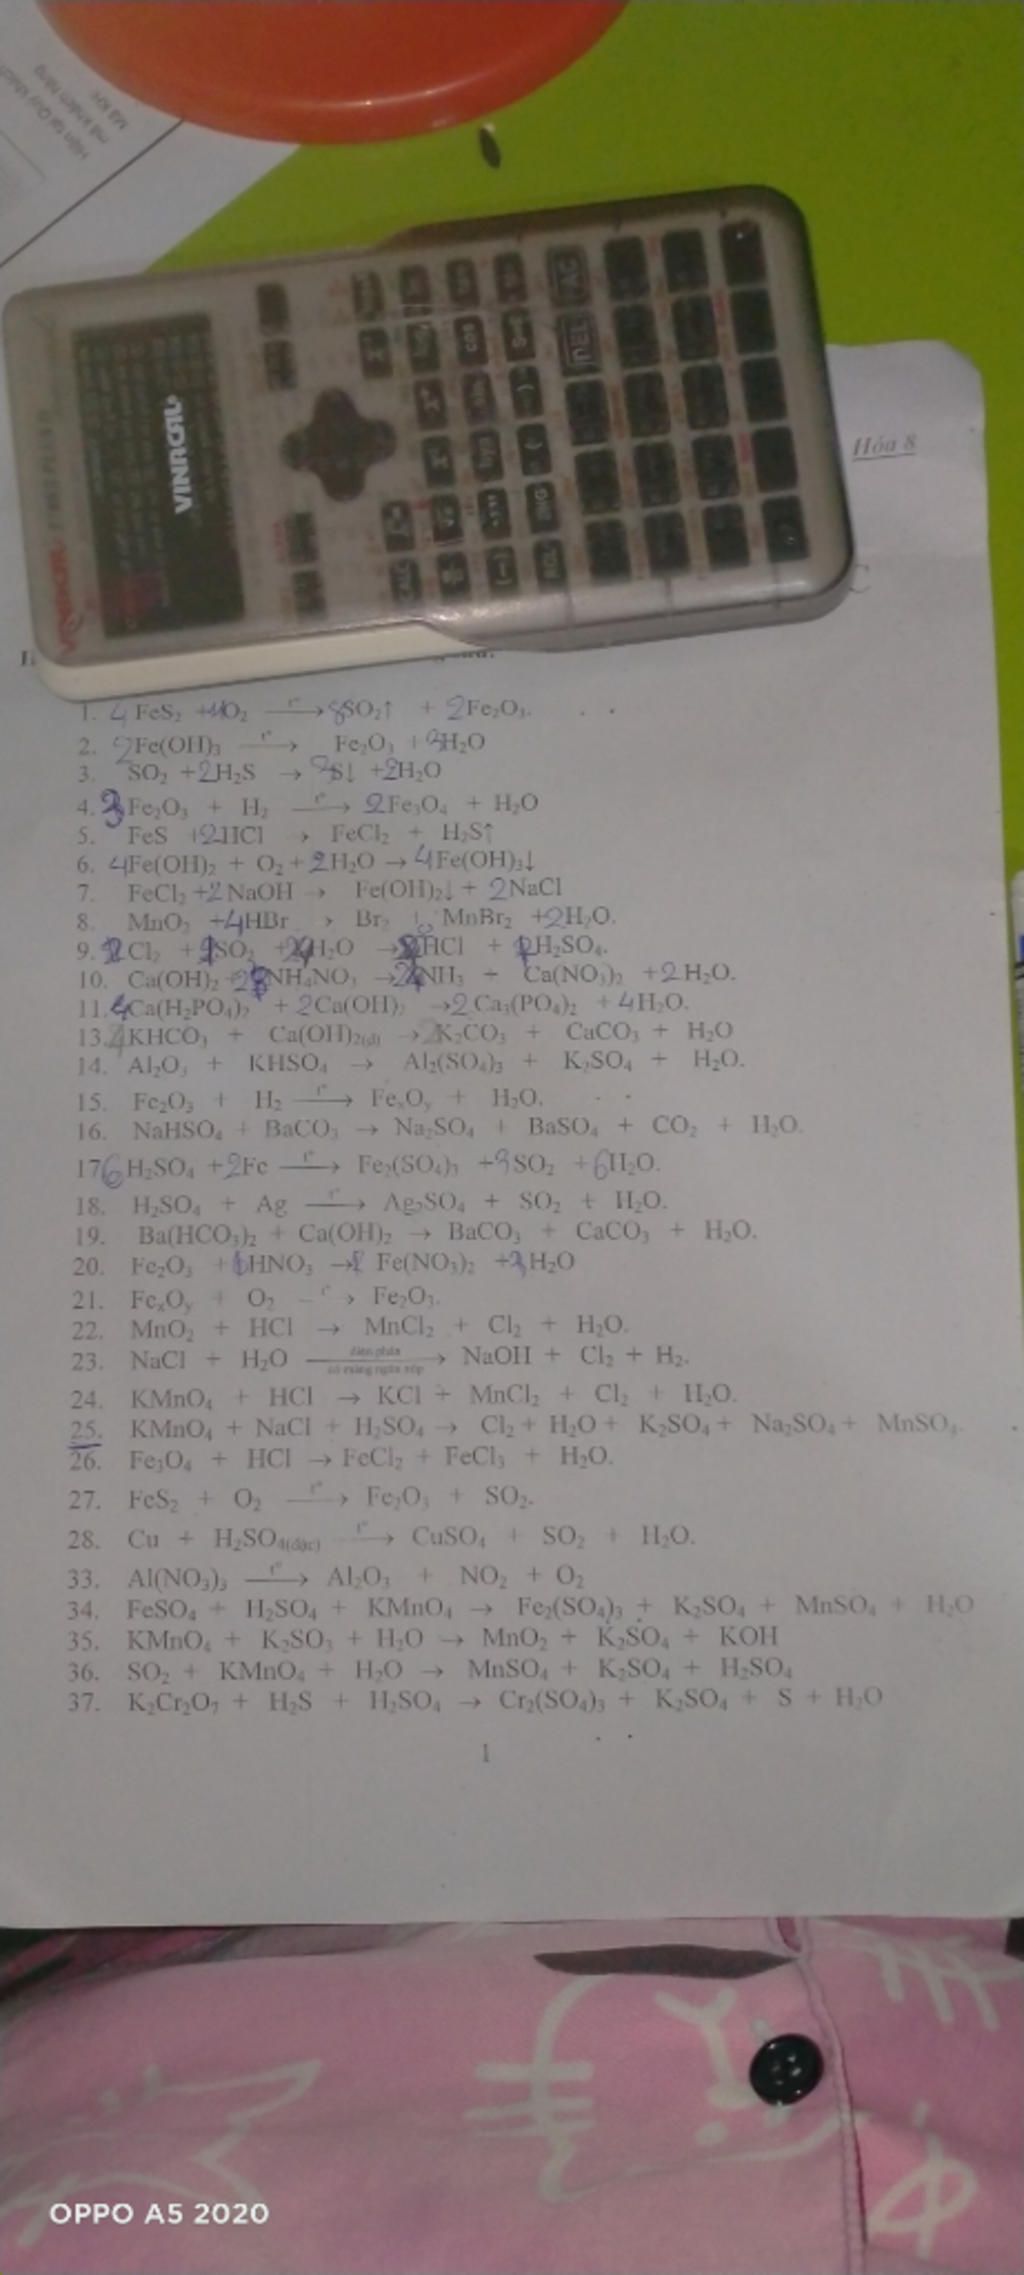 VINACAL
Hóa 8
1. 4 FeS₂ + 11O₂ —t°→ 8SO₂↑ + 2Fe₂O₃.
2. 2Fe(OH)₃ —t°→ Fe₂O₃ + 3H₂O
3. SO₂ + 2H₂S → 3S↓ + 2H₂O
4. 3Fe₂O₃ + H₂ —t°→ 2Fe₃O₄ + H₂O
5. FeS + 2HCl → FeCl₂ + H₂S↑
6. 4Fe(OH)₂ + O₂ + 2H₂O → 4Fe(OH)₃↓
7. FeCl₂ + 2NaOH → Fe(OH)₂↓ + 2NaCl
8. MnO₂ + 4HBr → Br₂ + MnBr₂ + 2H₂O.
9. Cl₂ + SO₂ + H₂O → HCl + H₂SO₄.
10. Ca(OH)₂ + 2NH₄NO₃ → 2NH₃ + Ca(NO₃)₂ + 2H₂O.
11. Ca(H₂PO₄)₂ + 2Ca(OH)₂ → 2Ca₃(PO₄)₂ + 4H₂O.
13. 4KHCO₃ + Ca(OH)₂₍d₎ → 2K₂CO₃ + CaCO₃ + H₂O
14. Al₂O₃ + KHSO₄ → Al₂(SO₄)₃ + K₂SO₄ + H₂O.
15. Fe₂O₃ + H₂ —t°→ FeₓOᵧ + H₂O.
16. NaHSO₄ + BaCO₃ → Na₂SO₄ + BaSO₄ + CO₂ + H₂O.
17. 6H₂SO₄ + 2Fe —t°→ Fe₂(SO₄)₃ + 3SO₂ + 6H₂O.
18. H₂SO₄ + Ag —t°→ Ag₂SO₄ + SO₂ + H₂O.
19. Ba(HCO₃)₂ + Ca(OH)₂ → BaCO₃ + CaCO₃ + H₂O.
20. Fe₂O₃ + HNO₃ → Fe(NO₃)₂ + 3H₂O
21. FeₓOᵧ + O₂ —t°→ Fe₂O₃.
22. MnO₂ + HCl → MnCl₂ + Cl₂ + H₂O.
23. NaCl + H₂O —điện phân có màng ngăn xốp→ NaOH + Cl₂ + H₂.
24. KMnO₄ + HCl → KCl + MnCl₂ + Cl₂ + H₂O.
25. KMnO₄ + NaCl + H₂SO₄ → Cl₂ + H₂O + K₂SO₄ + Na₂SO₄ + MnSO₄.
26. Fe₃O₄ + HCl → FeCl₂ + FeCl₃ + H₂O.
27. FeS₂ + O₂ —t°→ Fe₂O₃ + SO₂.
28. Cu + H₂SO₄(đặc) —t°→ CuSO₄ + SO₂ + H₂O.
33. Al(NO₃)₃ —t°→ Al₂O₃ + NO₂ + O₂
34. FeSO₄ + H₂SO₄ + KMnO₄ → Fe₂(SO₄)₃ + K₂SO₄ + MnSO₄ + H₂O
35. KMnO₄ + K₂SO₃ + H₂O → MnO₂ + K₂SO₄ + KOH
36. SO₂ + KMnO₄ + H₂O → MnSO₄ + K₂SO₄ + H₂SO₄
37. K₂Cr₂O₇ + H₂S + H₂SO₄ → Cr₂(SO₄)₃ + K₂SO₄ + S + H₂O
1
OPPO A5 2020